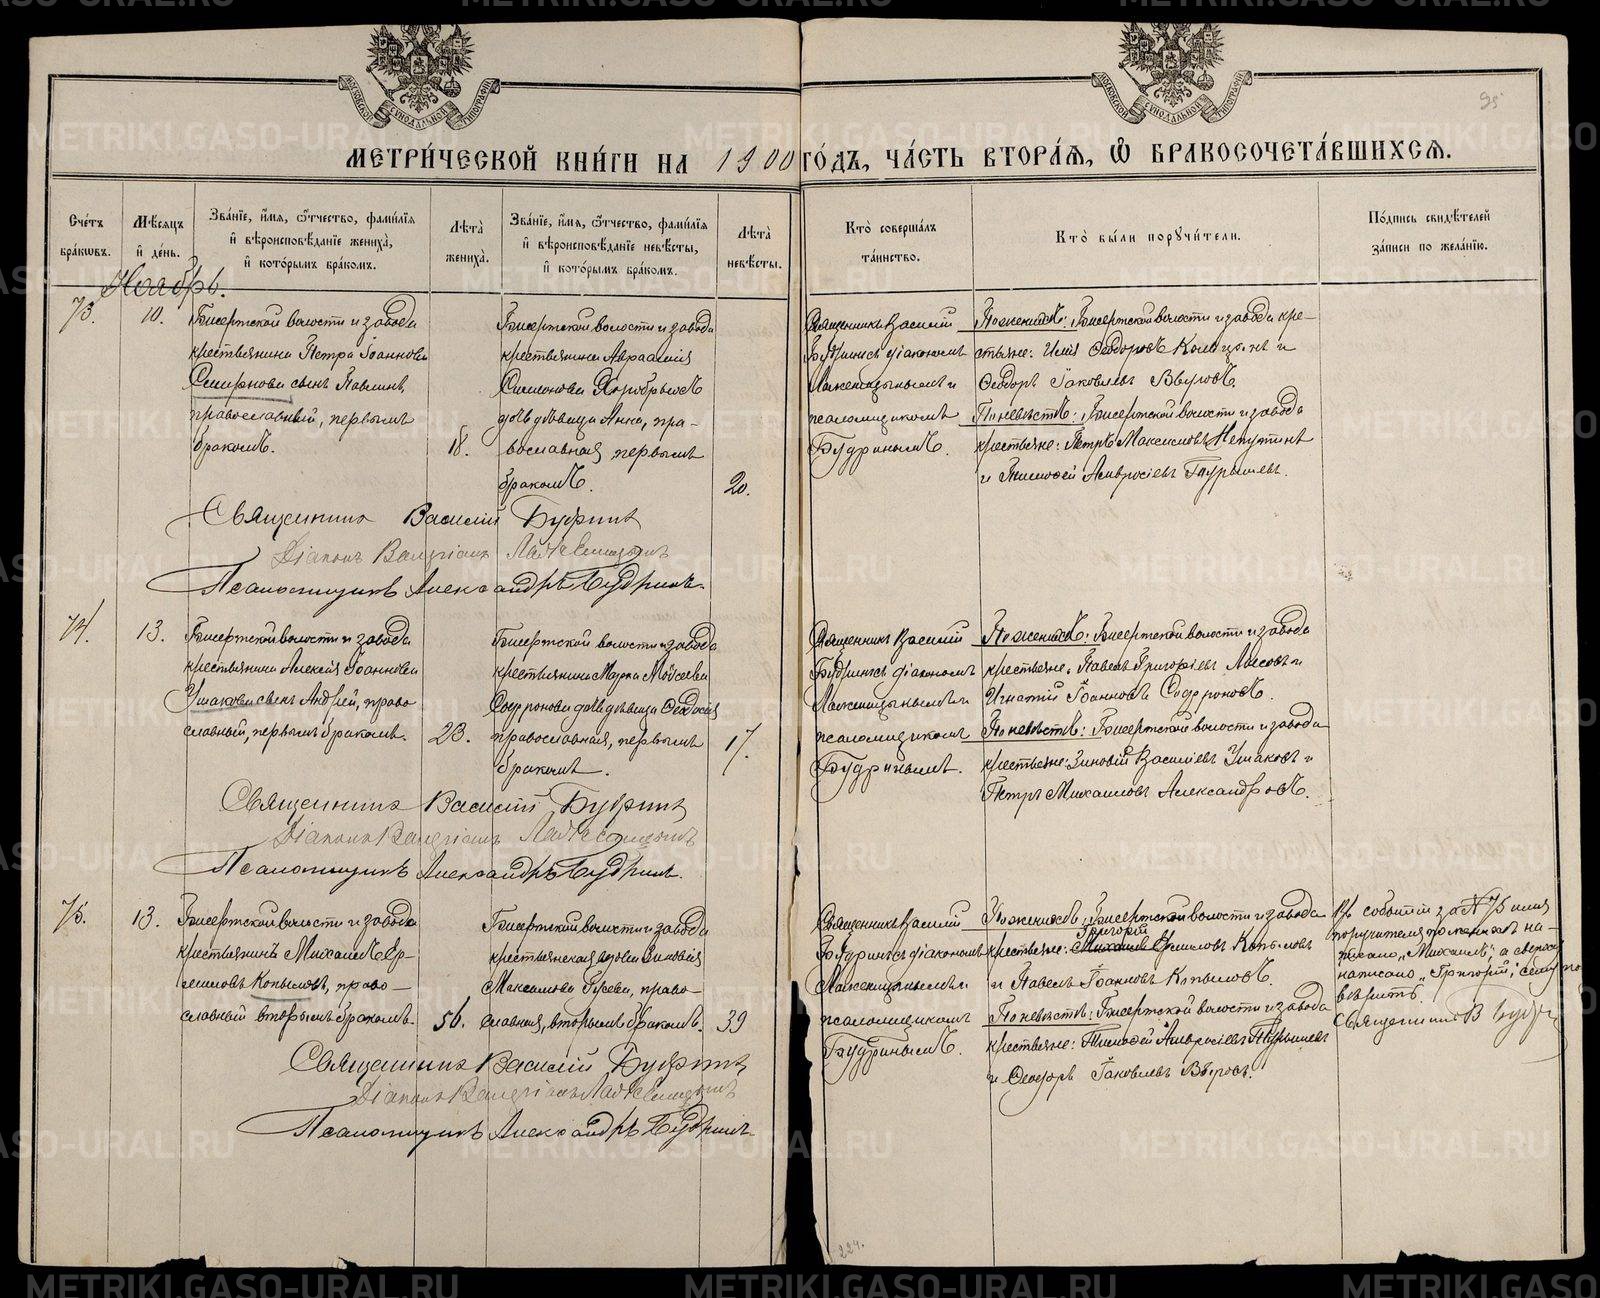 95
МЕТРИ́ЧЕСКОЙ КНИ́ГИ НА 1900 ГО́ДЪ, ЧА́СТЬ ВТОРА́Я, Ѡ БРАКОСОЧЕТА́ВШИХСЯ.
Сче́тъ бра́кѡвъ.
Мѣ́сяцъ и҆ де́нь.
Зва́нїе, и҆́мя, ѻ҆́тчество, фами́лїя и҆ вѣроисповѣ́данїе жениха̀, и҆ кото́рымъ бра́комъ.
Лѣта̀ жениха̀.
Зва́нїе, и҆́мя, ѻ҆́тчество, фами́лїя и҆ вѣроисповѣ́данїе невѣ́сты, и҆ кото́рымъ бра́комъ.
Лѣта̀ невѣ́сты.
Кто̀ соверша́лъ та́инство.
Кто̀ бы́ли порꙋчи́тели.
По́дпись свидѣ́телей за́писи по жела́нїю.
Ноябрь.
73.
10.
Бисертской волости и завода
крестьянина Петра Іоаннова
Смирнова сынъ Павлинъ,
православный, первымъ
бракомъ.
18.
Бисертской волости и завода
крестьянина Авраамія
Симонова Хоробрыхъ
дочь дѣвица Анна, пра-
вославная, первымъ
бракомъ.
20.
Священникъ Василій
Будринъ съ діакономъ
псаломщикомъ
Будринымъ.
По женихѣ: Бисертской волости и завода кре-
стьяне: Илія Ѳеодоровъ и
Ѳеодоръ Іаковлевъ
По невѣстѣ: Бисертской волости и завода
крестьяне: Петръ Максимовъ
и Тимоѳей Амвросіевъ Турышевъ.
Священникъ Василій Будринъ
Діаконъ Валеріанъ
Псаломщикъ Александръ Будринъ.
74.
13.
Бисертской волости и завода
крестьянина Алексія Іоаннова
Ушакова сынъ Андрей, право-
славный, первымъ бракомъ.
23.
Бисертской волости и завода
крестьянина Марка Моѵсеева
Софронова дочь дѣвица Ѳеодосія
православная, первымъ
бракомъ.
17.
Священникъ Василій
Будринъ съ діакономъ
псаломщикомъ
Будринымъ.
По женихѣ: Бисертской волости и завода
крестьяне: Павелъ Григорьевъ и
Игнатій Іоанновъ Софроновъ.
По невѣстѣ: Бисертской волости и завода
крестьяне: Зиновій Василіевъ Ушаковъ и
Петръ Михаиловъ Александровъ.
Священникъ Василій Будринъ
Діаконъ Валеріанъ
Псаломщикъ Александръ Будринъ.
75.
13.
Бисертской волости и завода
крестьянинъ Михаилъ Ер-
миловъ Копыловъ, право-
славный вторымъ бракомъ.
56.
Бисертской волости и завода
крестьянская вдова Зиновія
Максимова Гусева, право-
славная, вторымъ бракомъ.
39
Священникъ Василій
Будринъ съ діакономъ
псаломщикомъ
Будринымъ.
По женихѣ: Бисертской волости и завода
Григорій
крестьяне: Михаилъ Ермиловъ Копыловъ
и Павелъ Іоанновъ Копыловъ.
По невѣстѣ: Бисертской волости и завода
крестьяне: Тимоѳей Амвросіевъ Турышевъ
и Ѳеодоръ Іаковлевъ
Въ событіи за № 75 имя
поручителя по женихѣ на-
писано „Михаилъ“, а сверху
написано „Григорій“; сему
вѣрить.
Священникъ В Будринъ
Священникъ Василій Будринъ
Діаконъ Валеріанъ
Псаломщикъ Александръ Будринъ.
224.
METRIKI.GASO-URAL.RU